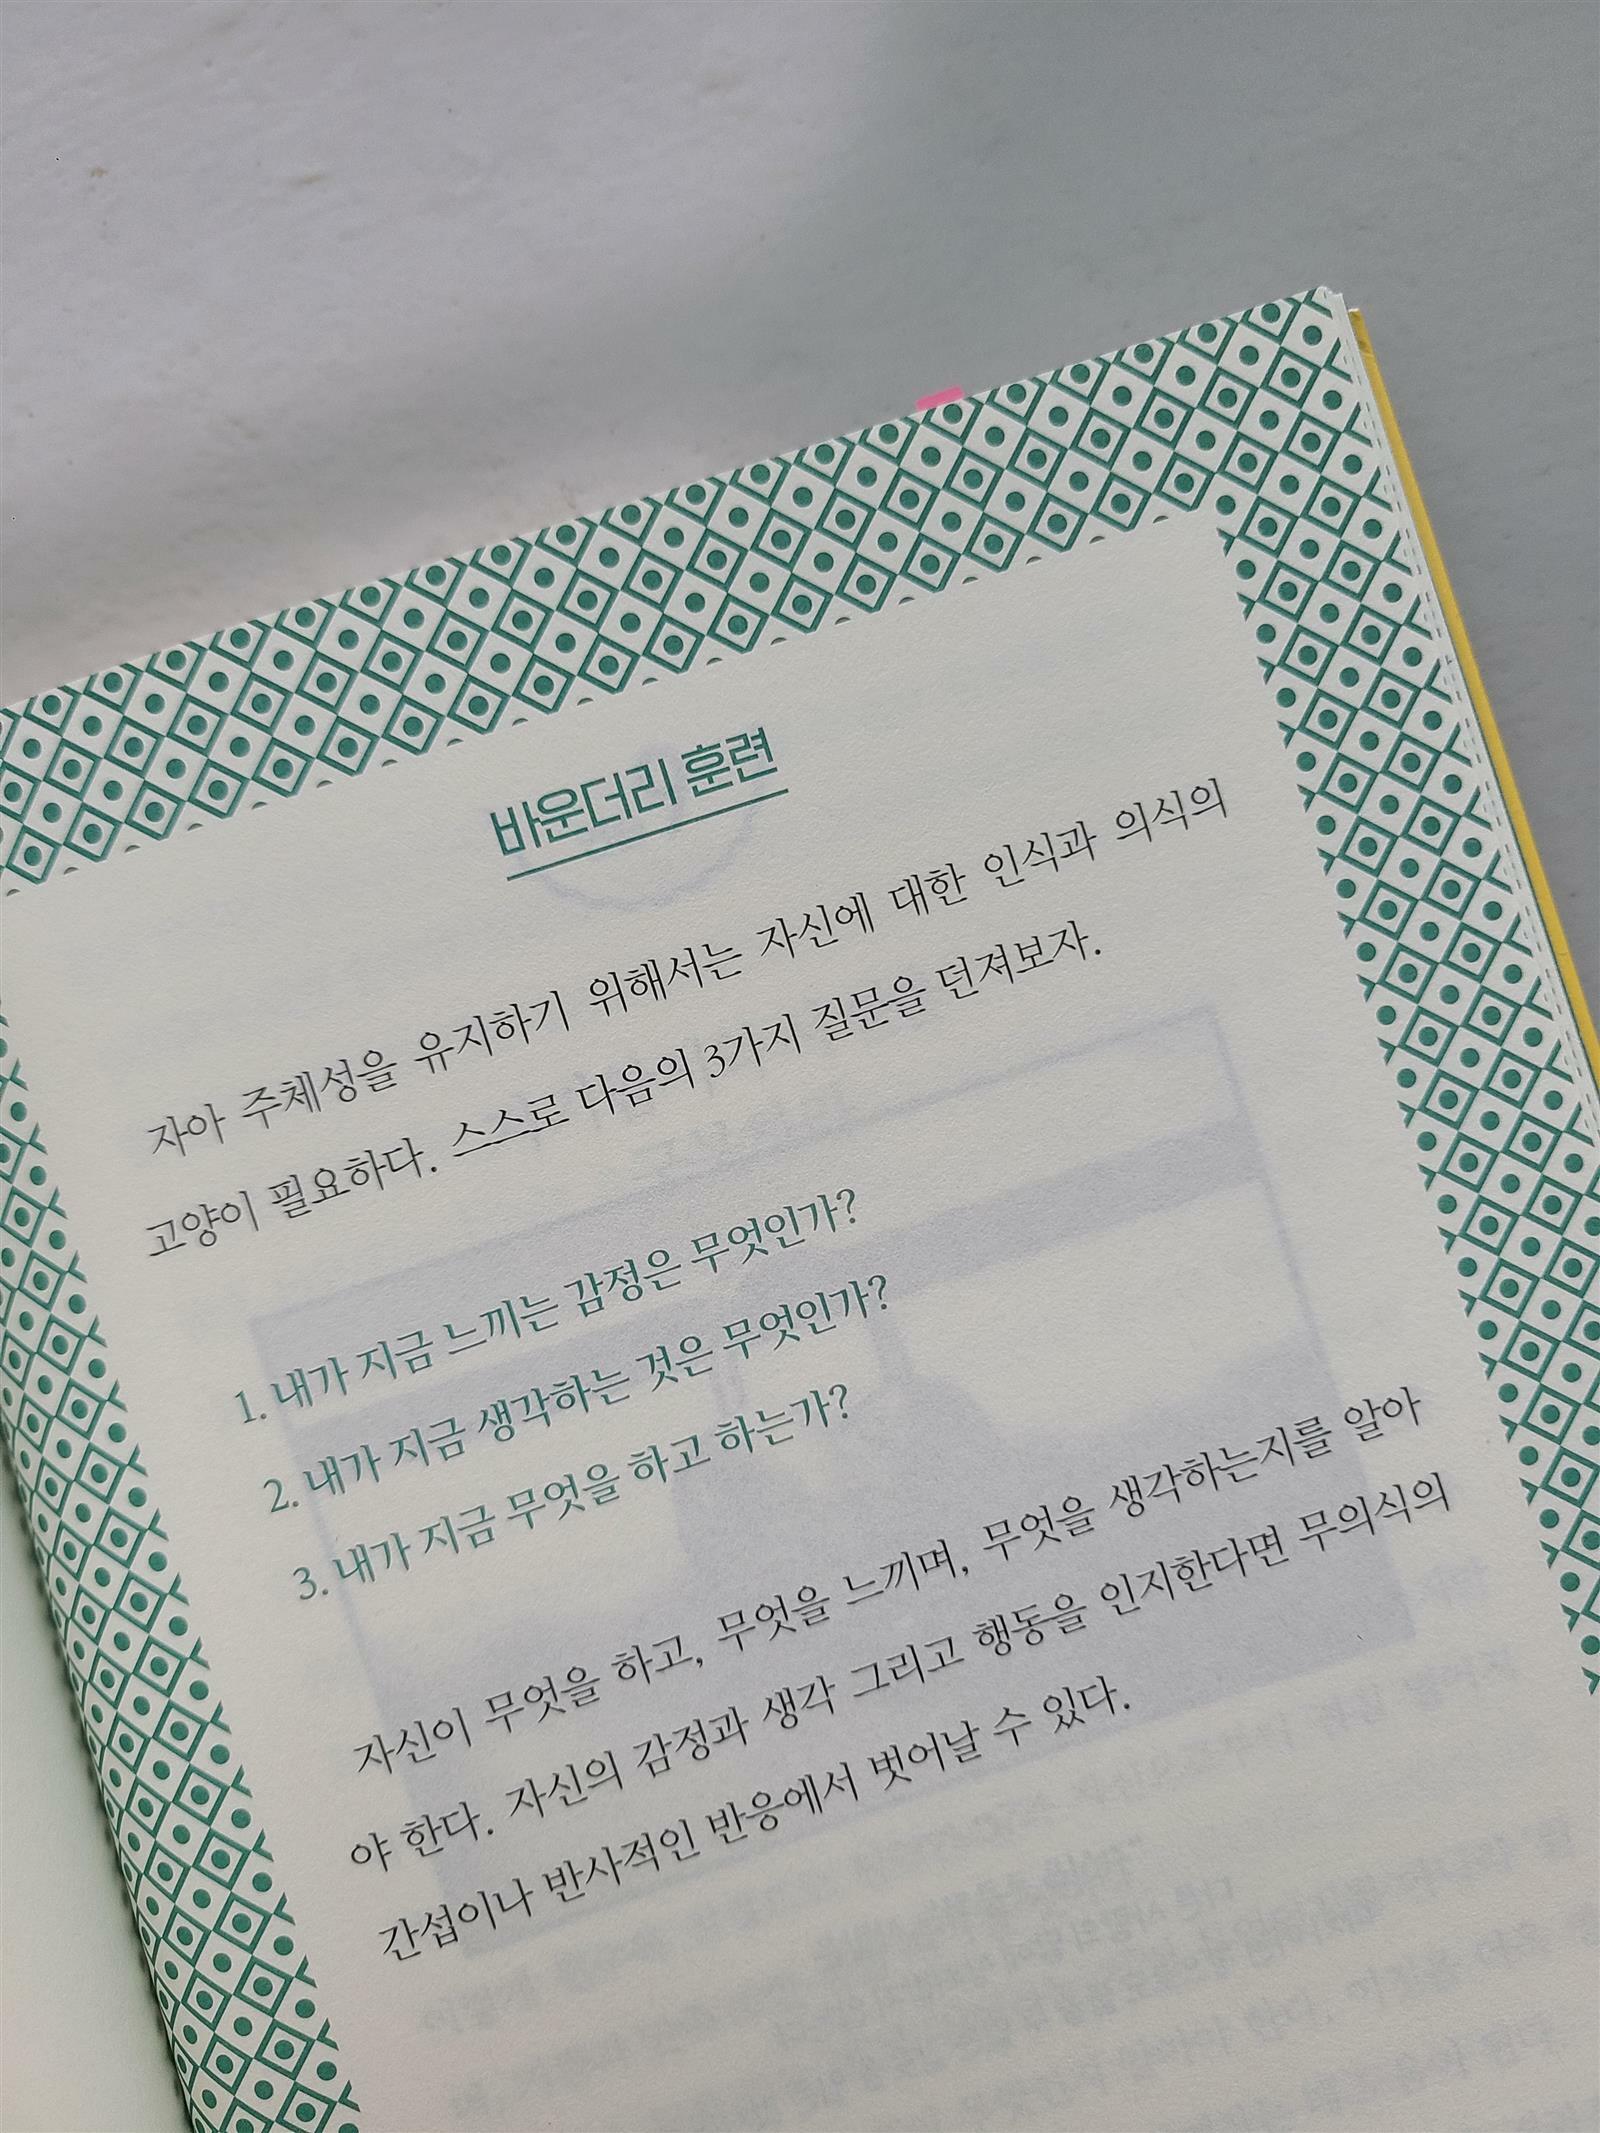 바운더리 훈련
자아 주체성을 유지하기 위해서는 자신에 대한 인식과 의식의
고양이 필요하다. 스스로 다음의 3가지 질문을 던져보자.
1. 내가 지금 느끼는 감정은 무엇인가?
2. 내가 지금 생각하는 것은 무엇인가?
3. 내가 지금 무엇을 하고 하는가?
자신이 무엇을 하고, 무엇을 느끼며, 무엇을 생각하는지를 알아
야 한다. 자신의 감정과 생각 그리고 행동을 인지한다면 무의식의
간섭이나 반사적인 반응에서 벗어날 수 있다.